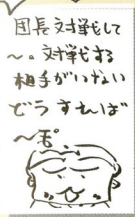 団長対戦もして
〜。対戦する
相手がいない
どうすれば
〜ぞ